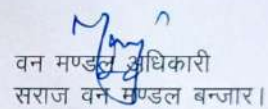 वन मण्डल अधिकारी
सराज वन मण्डल बन्जार।